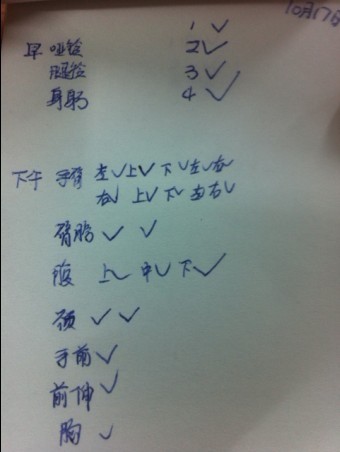 10月17日
1 ✓
早 哑铃 2 ✓
腿铃 3 ✓
身躬 4 ✓
下午 手臂 左✓ 上✓ 下✓ 左✓ 右✓
右✓ 上✓ 下✓ 左 右✓
肩膀 ✓ ✓
腹 上✓ 中✓ 下✓
颈 ✓ ✓
手前 ✓
前伸 ✓
胸 ✓